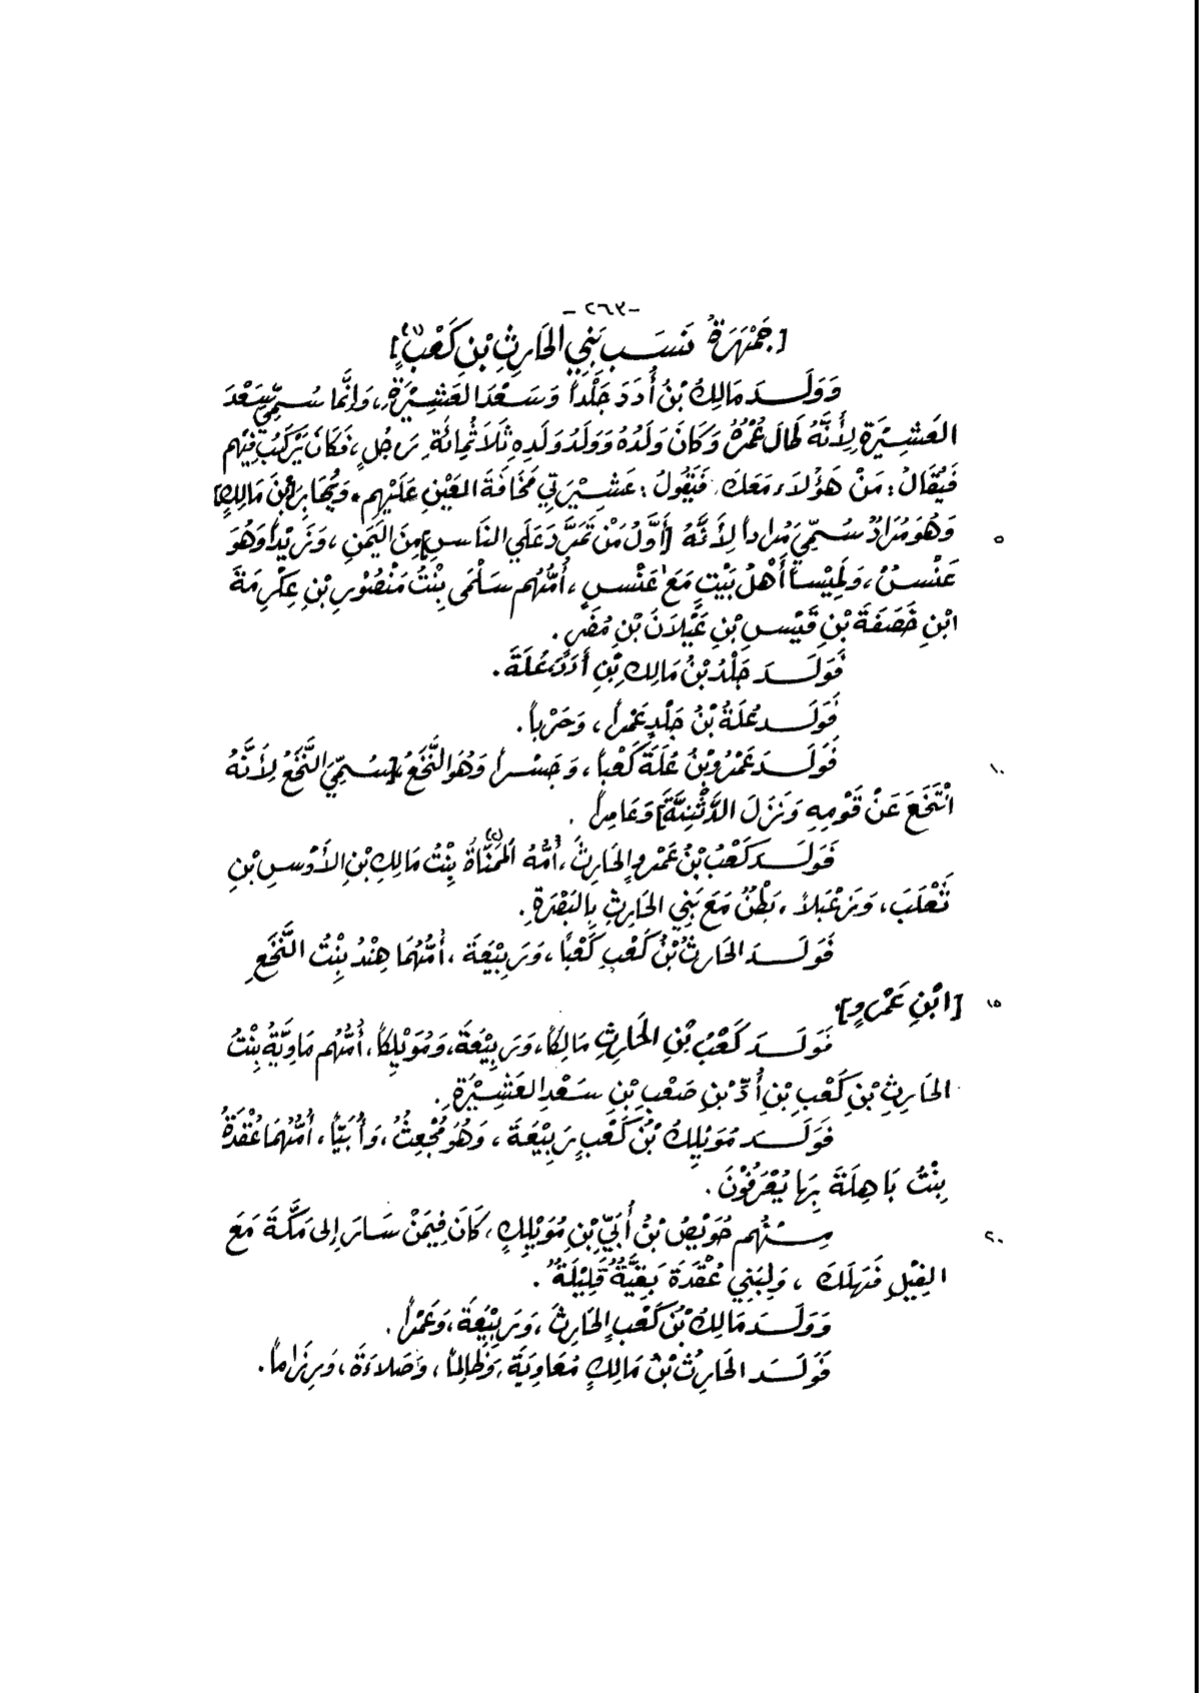 -٢٦٣-
[جَمْهَرَةُ نَسَبِ بَنِي الحَارِثِ بْنِ كَعْبٍ](١)
وَوَلَــدَ مَالِكُ بْنُ أُدَدَ جَلْداً وَسَعْدَ العَشِيْرَةِ، وَإِنَّمَا سُمِّيَ سَعْدَ
العَشِيْرَةِ لِأَنَّهُ طَالَ عُمْرُهُ وَكَانَ وَلَدُهُ وَوَلَدُ وَلَدِهِ ثَلاَثُمِائَةِ رَجُلٍ، فَكَانَ يَرْكَبُ فِيْهِم
فَيُقَالُ: مَنْ هَؤُلاَءِ مَعَكَ. فَيَقُولُ: عَشِيْرَتِي مَخَافَةَ العَيْنِ عَلَيْهِم. وَيُحَابِرَ[بْنَ مَالِكٍ]
وَهُوَ مُرَادٌ سُمِّيَ مُراداً لِأَنَّهُ [أَوَّلُ مَنْ تَمَرَّدَ عَلَى النَّاسِ] مِنَ اليَمَنِ، وَزَيْداً وَهُوَ
٥
عَنْسٌ، وَلَمِيْساً أَهْلُ بَيْتٍ مَعَ عَنْسٍ، أُمُّهُم سَلْمَى بِنْتُ مَنْصُوْرِ بْنِ عِكْرِمَةَ
ابْنِ خَصَفَةَ بْنِ قَيْسِ بْنِ عَيْلاَنَ بْنِ مُضَرٍ.
فَوَلَــدَ جَلْدُ بْنُ مَالِكِ بْنِ أُدَدَ عُلَةَ.
فَوَلَــدَ عُلَةُ بْنُ جَلْدٍ عَمْراً، وَحَرْباً.
فَوَلَــدَ عَمْرُو بْنُ عُلَةَ كَعْباً، وَجَسْراً وَهُوَ النَّخَعُ [سُمِّيَ النَّخَعُ لِأَنَّهُ
١٠
انْتَخَعَ عَنْ قَوْمِهِ وَنَزَلَ الدَّثِنِيَّةَ] وَعَامِراً.
فَوَلَــدَ كَعْبُ بْنُ عَمْرٍو الحَارِثَ، أُمُّهُ المُمَنَّاةُ(٢) بِنْتُ مَالِكِ بْنِ الأَوْسِ بْنِ
تَغْلَبَ، وَزَعْبَلاً، بَطْنٌ مَعَ بَنِي الحَارِثِ بِالبَصْرَةِ.
فَوَلَــدَ الحَارِثُ بْنُ كَعْبٍ كَعْباً، وَرَبِيْعَةَ، أُمُّهُمَا هِنْدُ بِنْتُ النَّخَعِ
[ابْنِ عَمْرٍو].
١٥
فَوَلَــدَ كَعْبُ بْنِ الحَارِثِ مَالِكاً، وَرَبِيْعَةَ، وَمُوَيْلِكاً، أُمُّهُم مَاوِيَّةُ بِنْتُ
الحَارِثِ بْنِ كَعْبِ بْنِ أُدِّ بْنِ صَعْبِ بْنِ سَعْدِ العَشِيْرَةِ.
فَوَلَــدَ مُوَيْلِكُ بْنُ كَعْبٍ رَبِيْعَةَ، وَهُوَ مُجْعِثٌ، وَأُبَيّاً، أُمُّهُمَا عُقْدَةُ
بِنْتُ بَاهِلَةَ بِهَا يُعْرَفُوْنَ.
مِــنْهُم حُوَيْصُ بْنُ أُبَيِّ بْنِ مُوَيْلِكٍ، كَانَ فِيْمَنْ سَارَ إِلى مَكَّةَ مَعَ
٢٠
الفِيْلِ فَهَلَكَ، وَلِبَنِي عُقْدَةَ بَقِيَّةٌ قَلِيْلَةٌ.
وَوَلَــدَ مَالِكُ بْنُ كَعْبٍ الحَارِثَ، وَرَبِيْعَةَ، وَعَمْراً.
فَوَلَــدَ الحَارِثُ بْنُ مَالِكٍ مُعَاوِيَةَ، وَظَالِماً، وَصَلاَءَةَ، وَرِزَاماً.